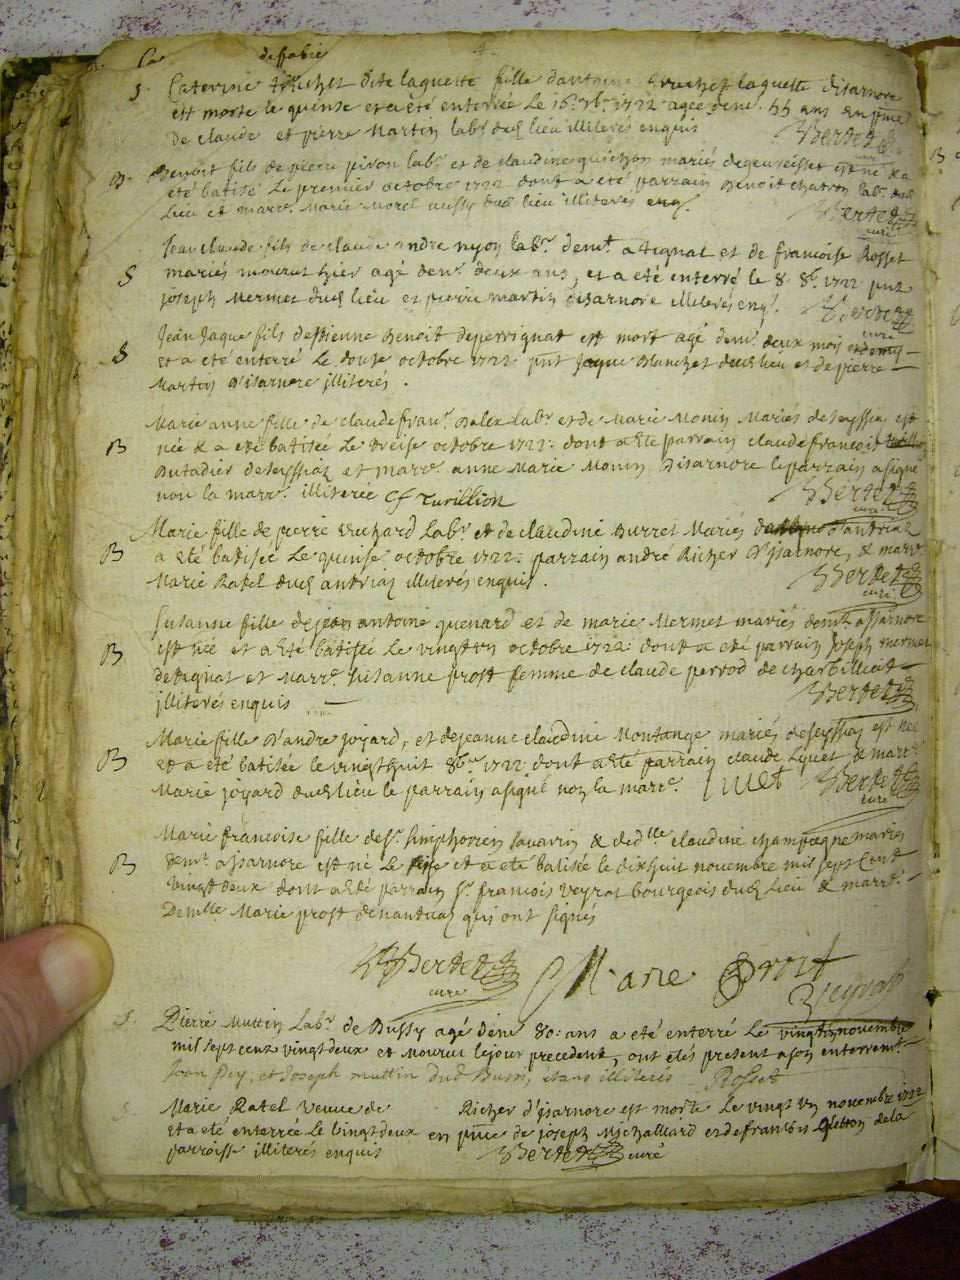 Caterine truchet dite laguette fille dantoine truchet laguette disarnore
est morte le quinse et a été enterrée Le 16e 7br. 1722 agée denv. 55 ans en pnce
de claude et pierre Martin labr dud lieu illiterés enquis
HBerdet
curé
B. Benoit fils de pierre piron labr et de claudine guichon mariés degeureisset est né & a
été batisé Le premier octobre 1722 dont a été parrain Benoit chatron labr dud
Lieu et marre. Marie Morel aussy dud lieu illiterés enq.
HBerdet
curé
S Jean claude fils de claude andre nyon labr. demt. a tignat et de francoise Rosset
mariés mourut hier agé denv. deux ans, et a été enterré le 8 8br 1722 pnt
joseph Mermet dud lieu et pierre martin disarnore illiterés enq.
HBerdet
curé
S Jean Jaque fils destienne Benoit deperrignat est mort agé denv. deux mois
et a été enterré Le douse octobre 1722 pnt Jaque Blanchet dud lieu et de pierre
Martin D'isarnore illiterés.
B Marie anne fille de claude fran. Dalex Labr et de Marie Monin Mariés de seyssia est
née & a été batisée Le treise octobre 1722: dont a été parrain claude francois
Dutadier deseyssiaz et marre. anne Marie Monin Disarnore le parrain a signé
non la marr. illiterée Cf Turillion
HBerdet
curé
B Marie fille de pierre Richard Labr et de claudine Burret Mariés dantriat
a été batisée Le quinse octobre 1722. parrain andré Richer D'isarnore, & marre
Marie Ratel dud antriaz illiterés enquis.
HBerdet
curé
B Susanne fille de jean antoine quenard et de marie Mermet mariés demt. a Isarnore
est née et a été batisée Le vingt un octobre 1722: dont a été parrain Joseph mermet
de tignat et Marre. susanne prost femme de claude perrod de charbilliat
illiterés enquis
HBerdet
B Marie fille D'andre joyard, et de jeanne claudine Montange mariés deseyssiaz est née
et a été batisée le vingt huit 8bre 1722 dont a été parrain claude Lyuet & marre
Marie joyard dud lieu le parrain a signé non la marre. Liuet
HBerdet
curé
B Marie francoise fille de sr. simphorien savarin & de dlle claudine champagne mariés
demt. a Isarnore est né Le seise et a été batisée le dix huit novembre mil sept cent
vingt deux dont a été parrain sr. francois veyrat bourgeois dud Lieu & marre.
Demlle Marie prost denantuaz qui ont signés
HBerdet
curé
Marie Proit
Veyrat
S. Pierre Muttin Labr. de Bussy agé denv 80: ans a eté enterré Le vingt un novembre
mil sept cent vingt deux et mourut lejour precedent, ont étés present a son enterremt.
Jean Pey, et Joseph muttin Dud Bussi étans illiterés Rosset
S. Marie Ratel veuve de Richer d'isarnore est morte Le vingt un novembre 1722
et a été enterrée Le vingt deux en pnce de joseph Michalliard et de francois Gletton de la
parroisse illiterés enquis HBerdet curé